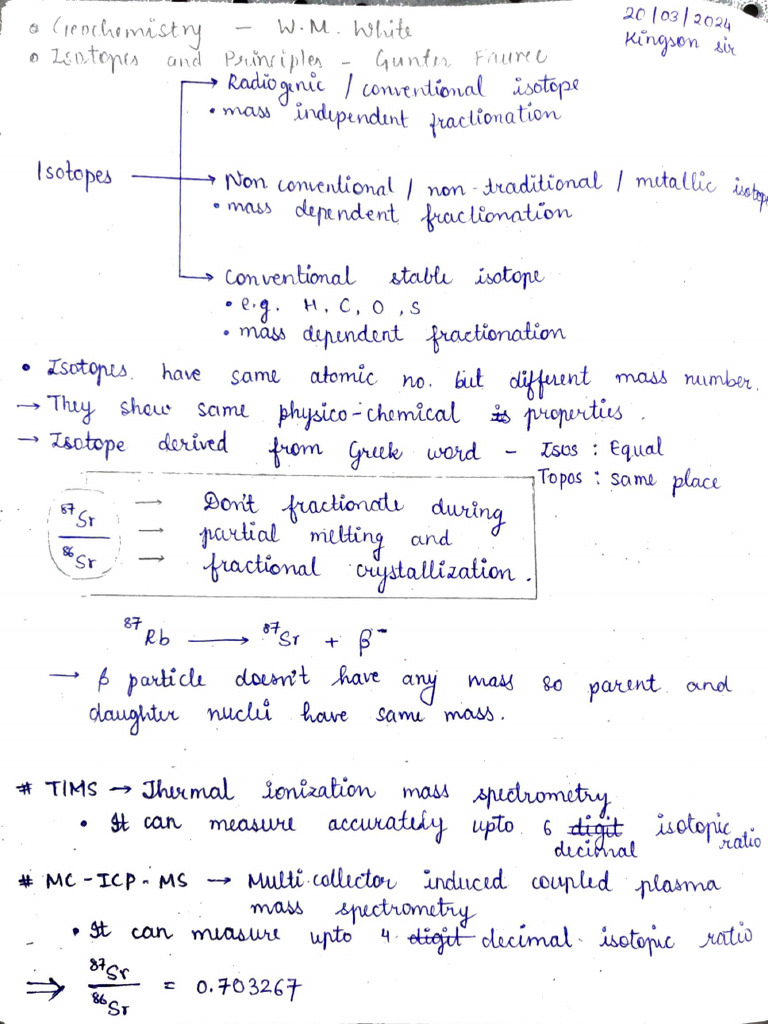 20/03/2024
Kingson sir
Geochemistry - W.M. White
Isotopes and Principles - Gunter Faure
Radiogenic / conventional isotope
• mass independent fractionation
Isotopes → Non conventional / non-traditional / metallic isotope
• mass dependent fractionation
Conventional stable isotope
• e.g. H, C, O, S
• mass dependent fractionation
• Isotopes have same atomic no. but different mass number.
→ They show same physico-chemical properties.
→ Isotope derived from Greek word - Isos : Equal
Topos : same place
⁸⁷Sr / ⁸⁶Sr
→ Don't fractionate during
→ partial melting and
→ fractional crystallization.
⁸⁷Rb → ⁸⁷Sr + β⁻
→ β particle doesn't have any mass so parent and
daughter nuclei have same mass.
# TIMS → Thermal ionization mass spectrometry
• It can measure accurately upto 6 digit isotopic ratio
decimal
# MC-ICP-MS → Multi-collector induced coupled plasma
mass spectrometry
• It can measure upto 4 digit decimal isotopic ratio
⇒ ⁸⁷Sr / ⁸⁶Sr = 0.703267